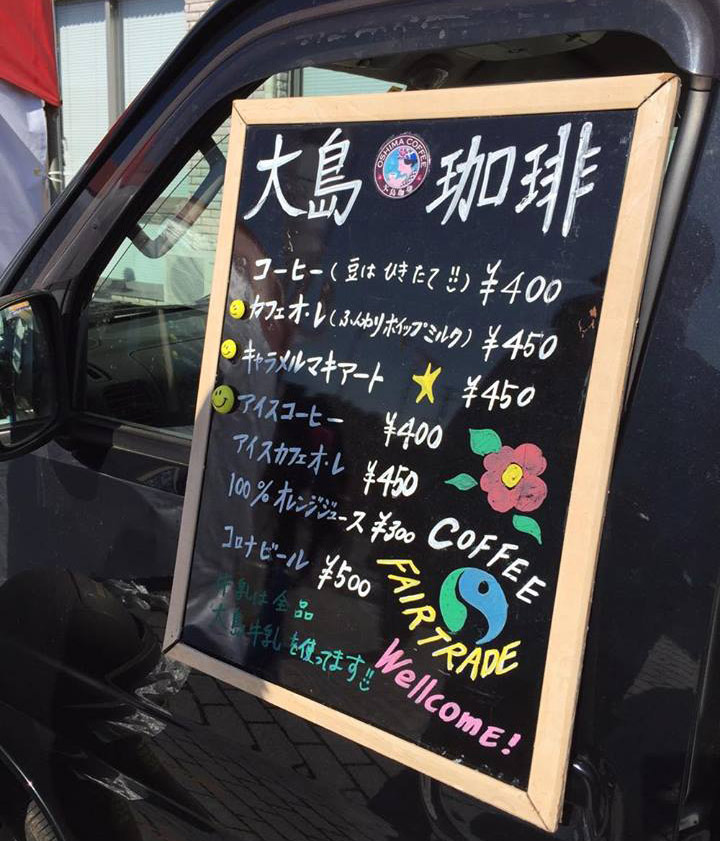 大島 珈琲
OSHIMA COFFEE
大島珈琲
コーヒー(豆はひきたて!!) ¥400
カフェオ・レ(ふんわりホイップミルク) ¥450
キャラメルマキアート ¥450
アイスコーヒー ¥400
アイスカフェオ・レ ¥450
100% オレンジジュース ¥300
コロナビール ¥500
牛乳は全品
大島牛乳を使ってます!!
COFFEE
FAIRTRADE
WellcomE!